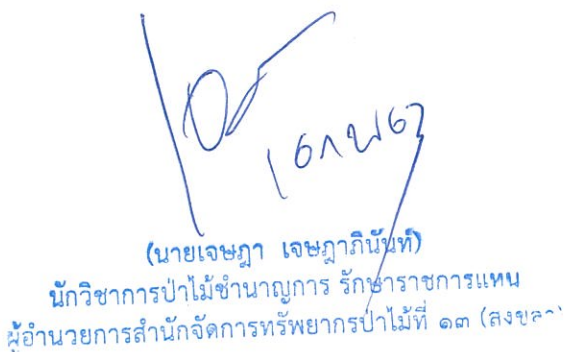 (นายเจษฎา เจษฎาภินันท์)
นักวิชาการป่าไม้ชำนาญการ รักษาราชการแทน
ผู้อำนวยการสำนักจัดการทรัพยากรป่าไม้ที่ ๑๓ (สงขลา)